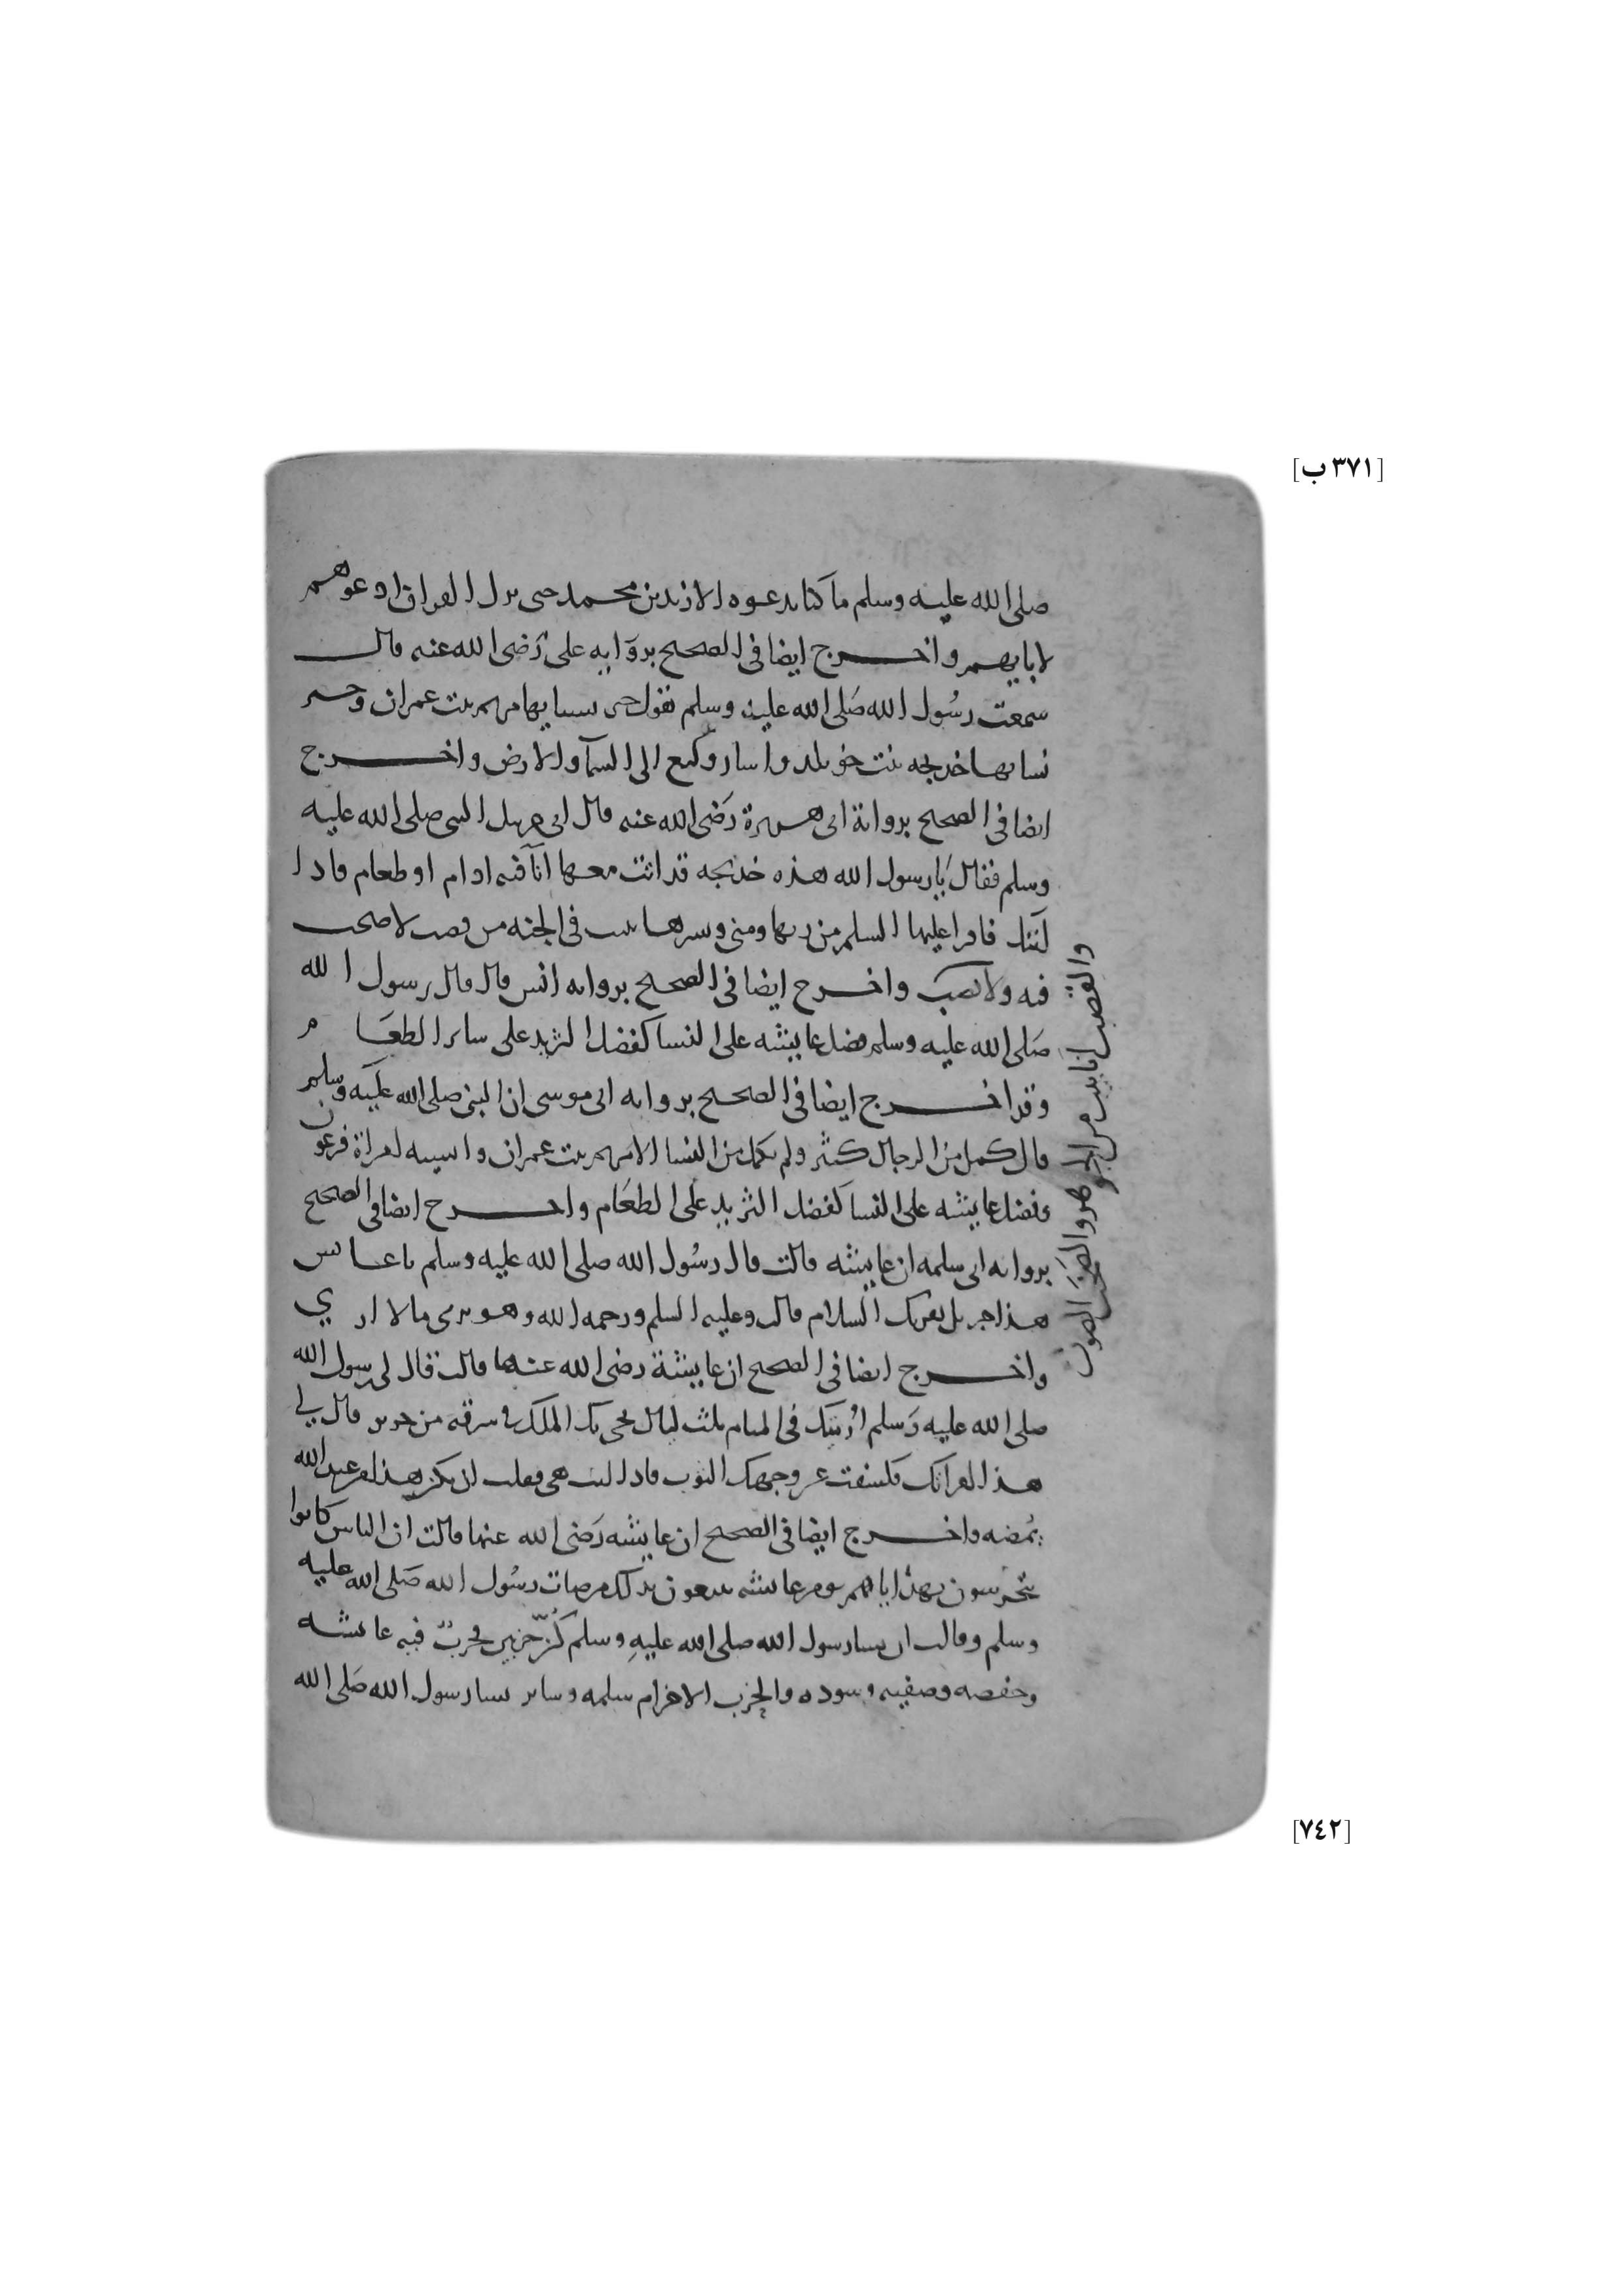 [٣٧١ ب]
صلى الله عليه وسلم ما كنا ندعوه الا زيد بن محمد حتى نزل القران ادعوهم
لابايهم واخرج ايضا في الصحيح بروايه على رَضى الله عنه قال
سمعت رسُول الله صَلى الله عليه وسلم نقول خير نسايها مريم بنت عمران وخير
نسايها خديجه بنت خويلد واشار وكيع الى السمآ والارض واخرج
ايضا في الصحيح برواية ابى هريرة رَضى الله عنه قال اتى جبريل النبى صلى الله عليه
وسلم فقال يَا رسول الله هذه خديجه قد اتت معها انآ فيه ادام او طعام فاذا
اتتك فاقرا عليها السلم من ربها ومنى وبشرها ببيت في الجنه من قصب لا صخب
فيه ولا نصَب واخرج ايضا في الصحيح بروايه انس قال قال رسول الله
صَلى الله عليه وسلم فضل عايشه على النسا كفضل الثريد على ساير الطعَام
وقد اخرج ايضا في الصحيح بروايه ابى موسى ان النبى صلى الله عليَه وسلم
قال كمل من الرجال كثير ولم يكمل من النسا الا مريم بنت عمران واسيه امراة فرعون
وفضل عايشه على النسا كفضل الثريد على الطعَام واخرج ايضا في الصحيح
بروايه ابى سلمه ان عايشه قالت قال رسُول الله صلى الله عليه وسلم يا عايش
هذا جبريل يقريك السلام قالت وعليه السلم ورحمه الله وهو يرى ما لا ارى
واخرج ايضا في الصحيح ان عايشة رضى الله عنها قالت قال لى رسول الله
صلى الله عليه وَسلم اُريتك في المنام ثلث ليال يجى بك الملك في سرقه من حرير قال لي
هذا امراتك فكشفت عن وجهك الثوب فاذا انت هى فقلت ان يكن هذا من عند الله
يُمضه واخرج ايضا في الصحيح ان عايشه رَضى الله عنها قالت ان الناس كانوا
يتحرون بهداياهم يوم عايشه يبتغون بذلك مرضات رسُول الله صَلى الله عليه
وسلم وقالت ان نسا رسول الله صلى الله عليهِ وسلم كُنّ حزبين فحزبٌ فيه عايشه
وحفصه وصفيه وسوده والحزب الاخر ام سلمه وساير نسا رسول الله صَلى الله
والقصب انابيب من الجوهر والصخب الصوت
[٧٤٢]